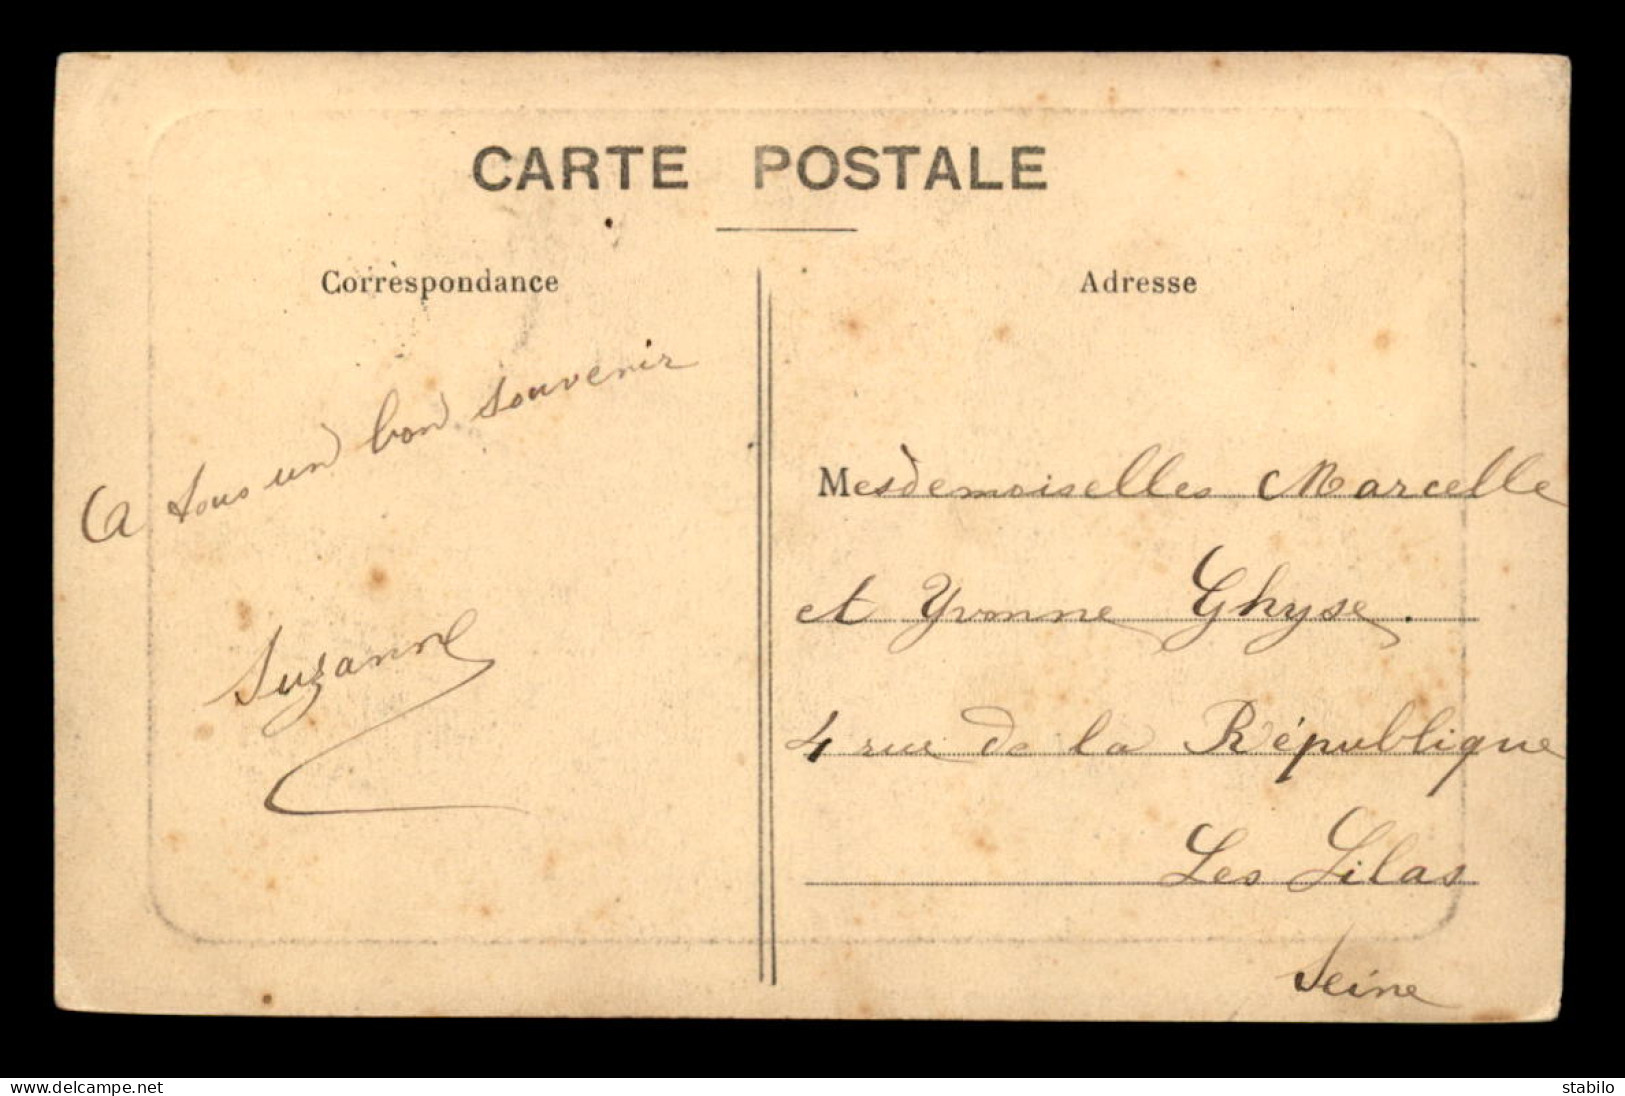 CARTE POSTALE
Correspondance
Adresse
A tous un bon souvenir
Suzanne
Mesdemoiselles Marcelle
et Yvonne Ghyse.
4 rue de la République
Les Lilas
Seine
www.delcampe.net
stabilo